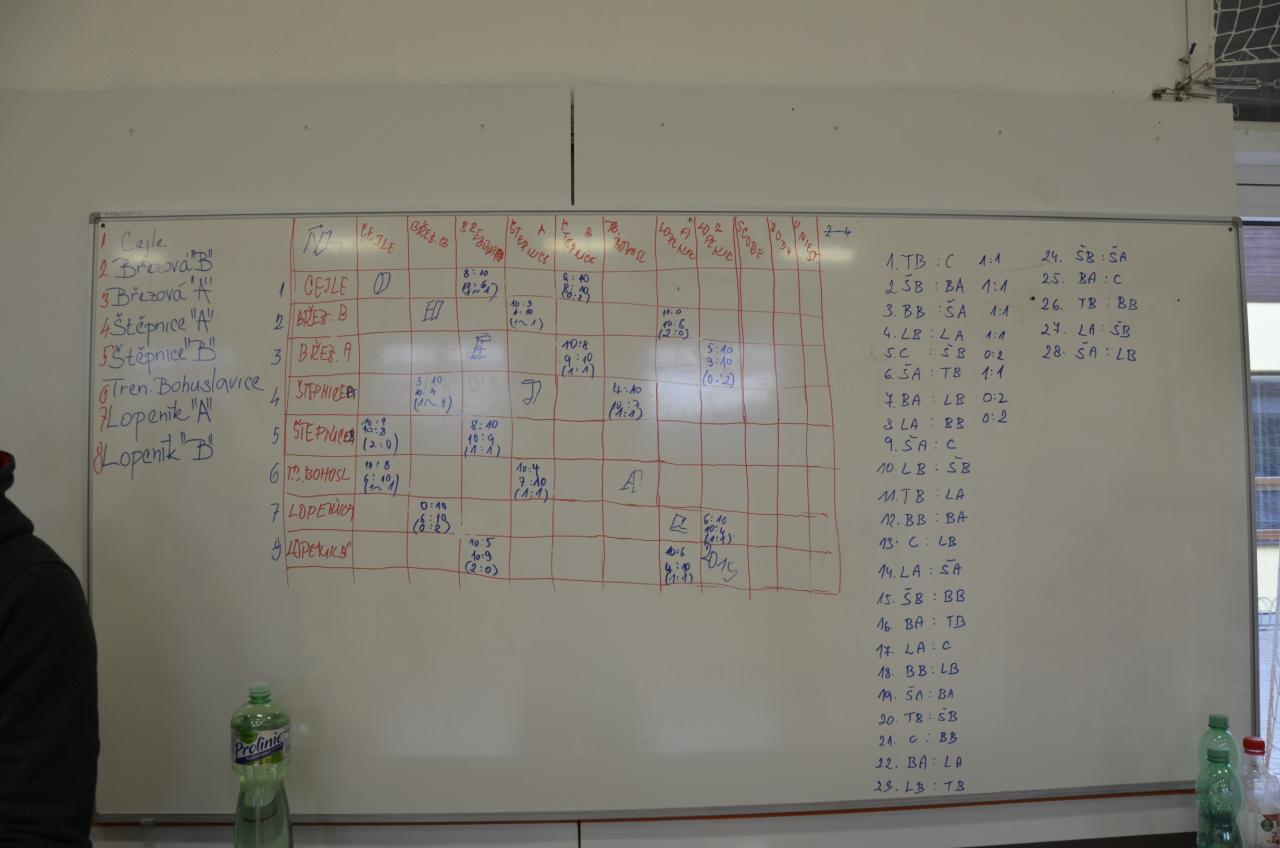 1 Cejle
2 Březová "B"
3 Březová "A"
4 Štěpnice "A"
5 Štěpnice "B"
6 Tren. Bohuslavice
7 Lopeník "A"
8 Lopeník "B"
CEJLE BŘEZ. B A B SCORE BODY 2-4
1 CEJLE 8:10 8:10
(0:2)
2 BŘEZ. B 10:3 (1:1) 10:0 10:6 (2:0)
3 BŘEZ. A 10:8 9:10 (1:1) 5:10 9:10 (0:2)
4 ŠTĚPNICE A 3:10 10:4 (1:1) 4:10 10:7 (1:1)
5 ŠTĚPNICE B (2:0) 8:10 10:9 (1:1)
6 TR. BOHUSL 10:8 6:10 (1:1) 10:4 7:10 (1:1)
7 LOPENÍK A 0:10 6:10 (0:2) 6:10 10:4 (1:1)
LOPENÍK B 10:5 10:9 (2:0) 10:6 4:10 (1:1) 2015
1. TB : C 1:1
2. ŠB : BA 1:1
3. BB : ŠA 1:1
4. LB : LA 1:1
5. C : ŠB 0:2
6. ŠA : TB 1:1
7. BA : LB 0:2
8. LA : BB 0:2
9. ŠA : C
10. LB : ŠB
11. TB : LA
12. BB : BA
13. C : LB
14. LA : ŠA
15. ŠB : BB
16. BA : TB
17. LA : C
18. BB : LB
19. ŠA : BA
20. TB : ŠB
21. C : BB
22. BA : LA
23. LB : TB
24. ŠB : ŠA
25. BA : C
26. TB : BB
27. LA : ŠB
28. ŠA : LB
Prolinie